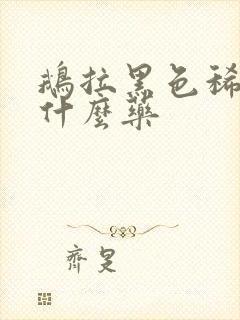 鵝拉黑色稀
什麼藥
齊旻